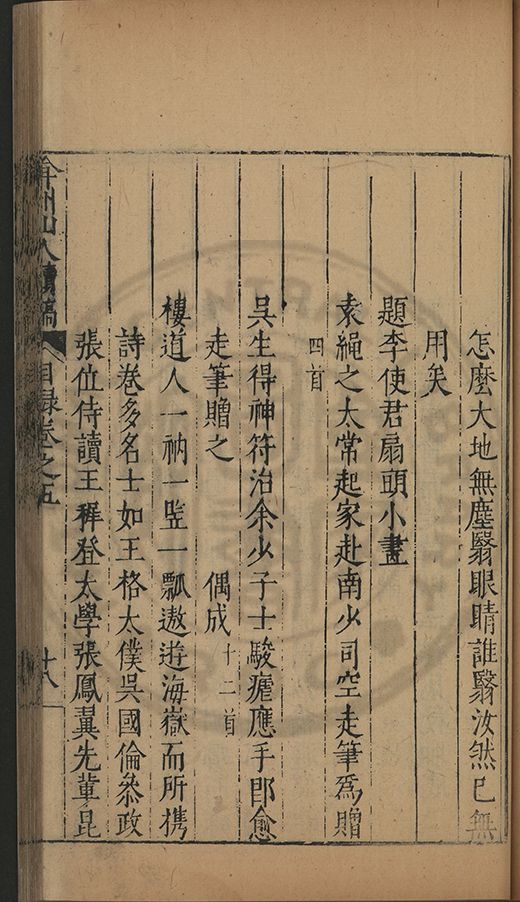 怎麼大地無塵翳眼睛誰翳汝然已無
用矣
題李使君扇頭小畫
袁繩之太常起家赴南少司空走筆爲贈
四首
吳生得神符治余少子士駿瘧應手即愈
走筆贈之　偶成十二首
樓道人一衲一籃一瓢遨遊海嶽而所携
詩卷多名士如王格太僕吳國倫叅政
張位侍讀王穉登太學張鳳翼先輩昆
弇州山人續稿　目録卷之五　十八